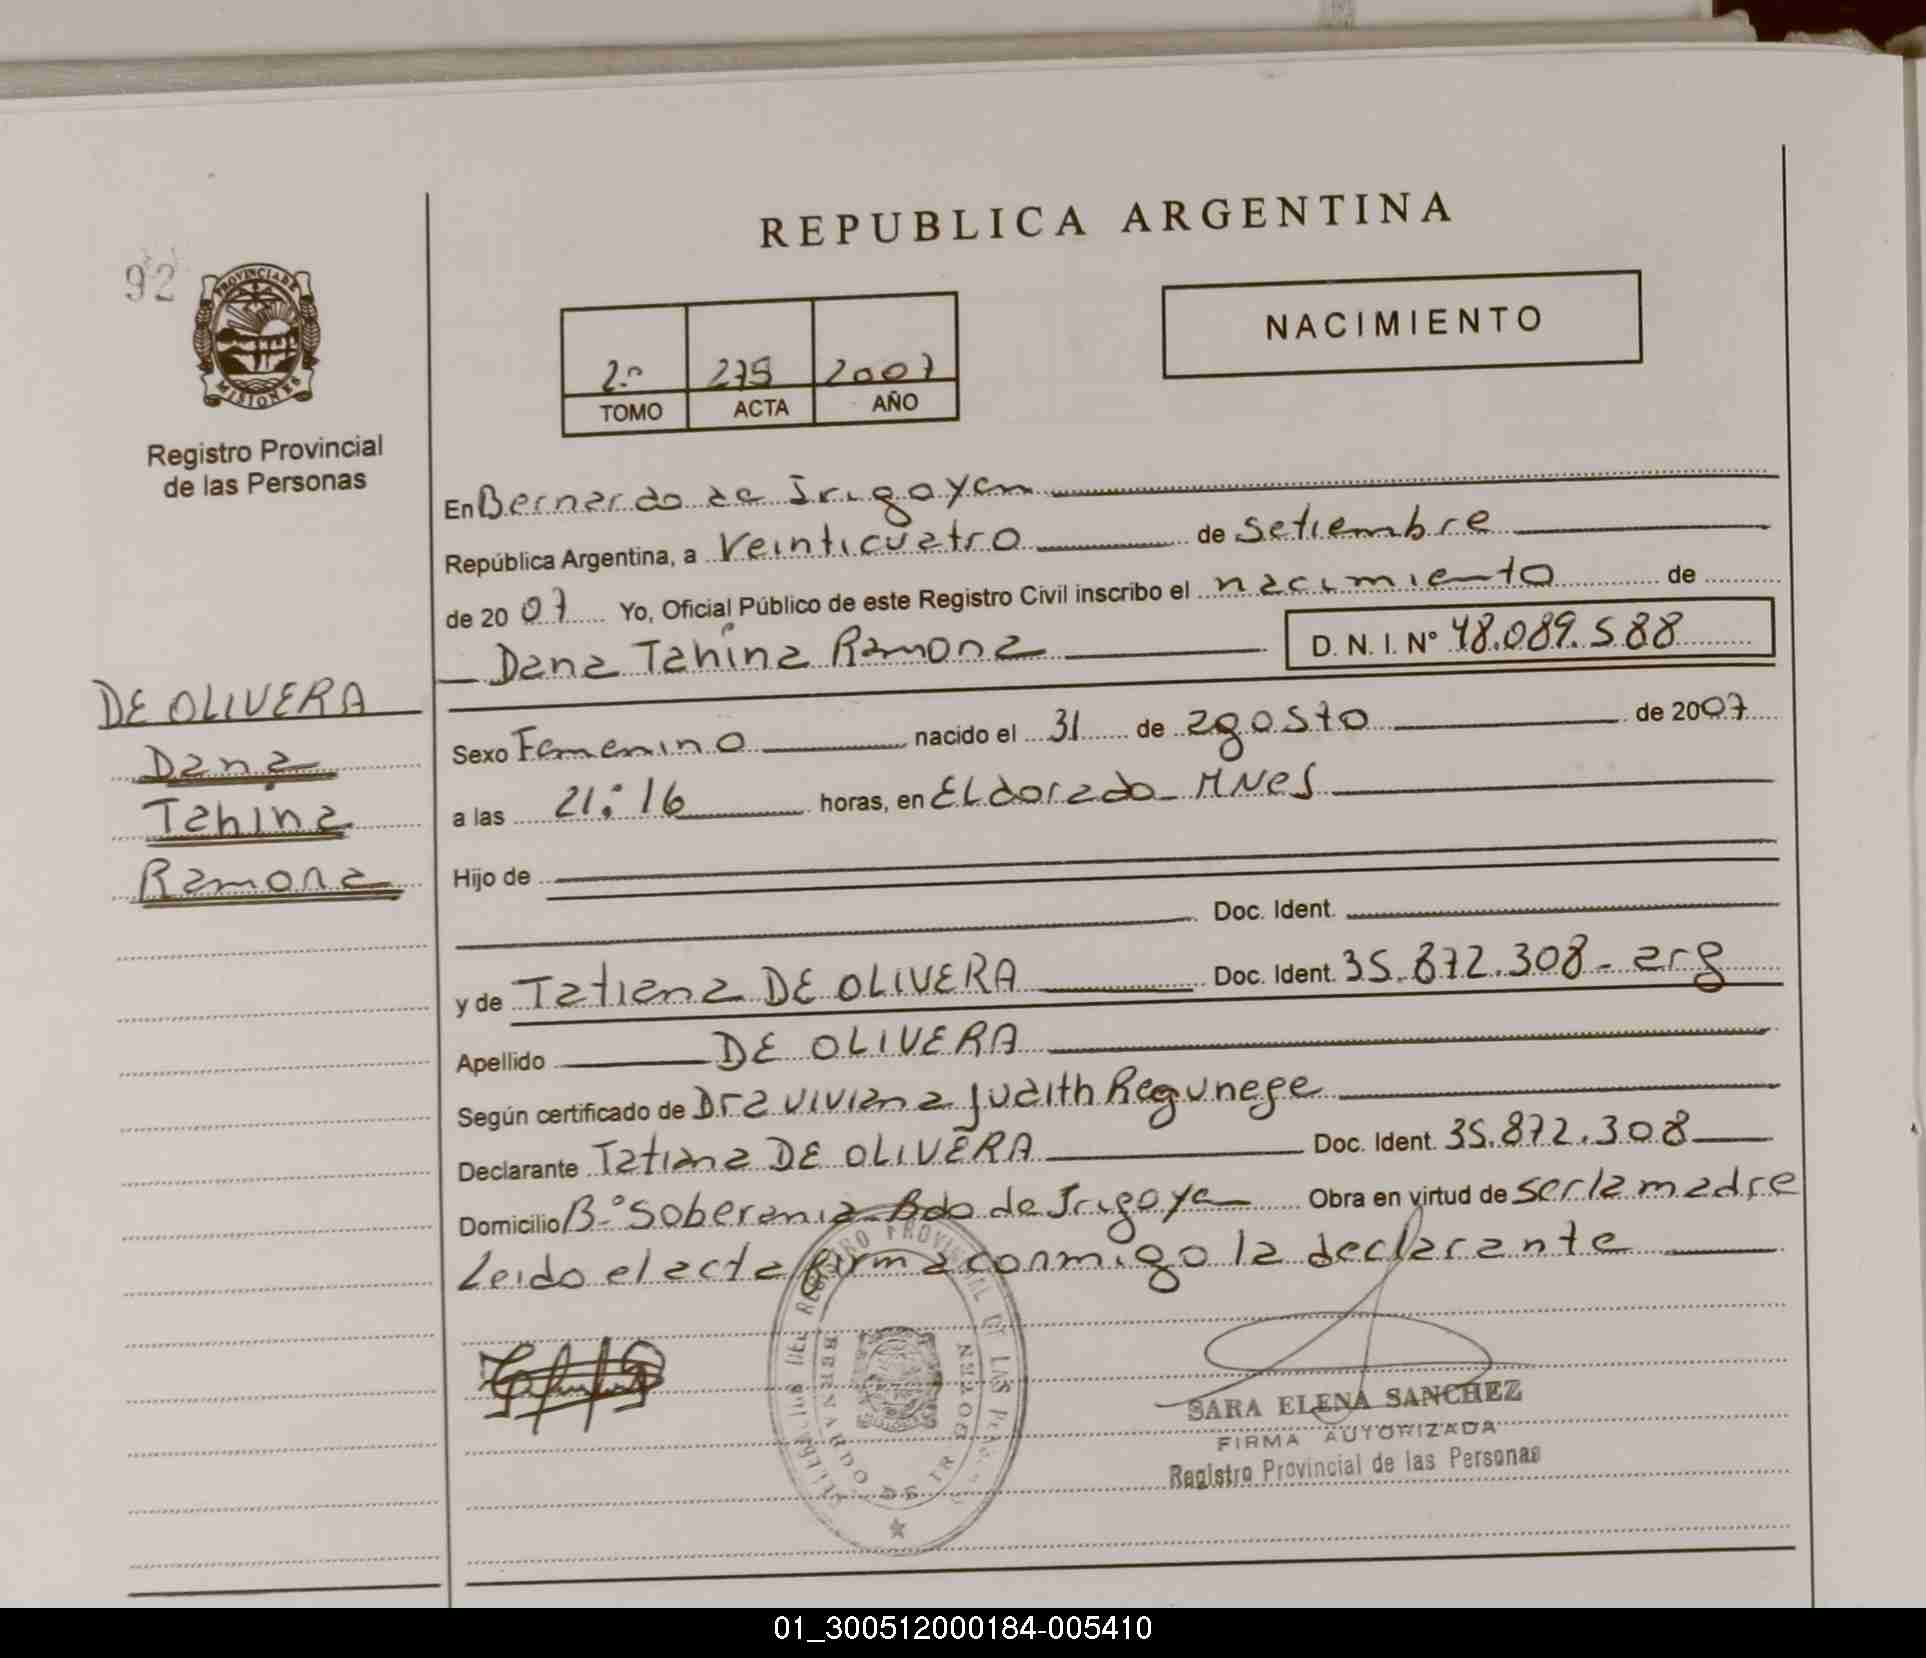 REPUBLICA ARGENTINA
92
PROVINCIA DE MISIONES
Registro Provincial
de las Personas
2.º 275 2007
TOMO ACTA AÑO
NACIMIENTO
En Bernardo de Irigoyen
República Argentina, a Veinticuatro de Setiembre
de 2007 Yo, Oficial Público de este Registro Civil inscribo el nacimiento de
Dana Tahina Ramona D. N. I. Nº 48.089.588
DE OLIVERA
Dana
Tahina
Ramona
Sexo Femenino nacido el 31 de agosto de 2007
a las 21:16 horas, en Eldorado Mnes
Hijo de
Doc. Ident.
y de Tatiana DE OLIVERA Doc. Ident. 35.872.308 - arg
Apellido DE OLIVERA
Según certificado de Dra Viviana Judith
Declarante Tatiana DE OLIVERA Doc. Ident. 35.872.308
Domicilio B.º Soberania Bdo de Irigoye Obra en virtud de ser la madre
Leido el acta firma conmigo la declarante
REGISTRO PROVINCIAL DE LAS
BERNARDO DE
SARA ELENA SANCHEZ
FIRMA AUTORIZADA
Registro Provincial de las Personas
01_300512000184-005410